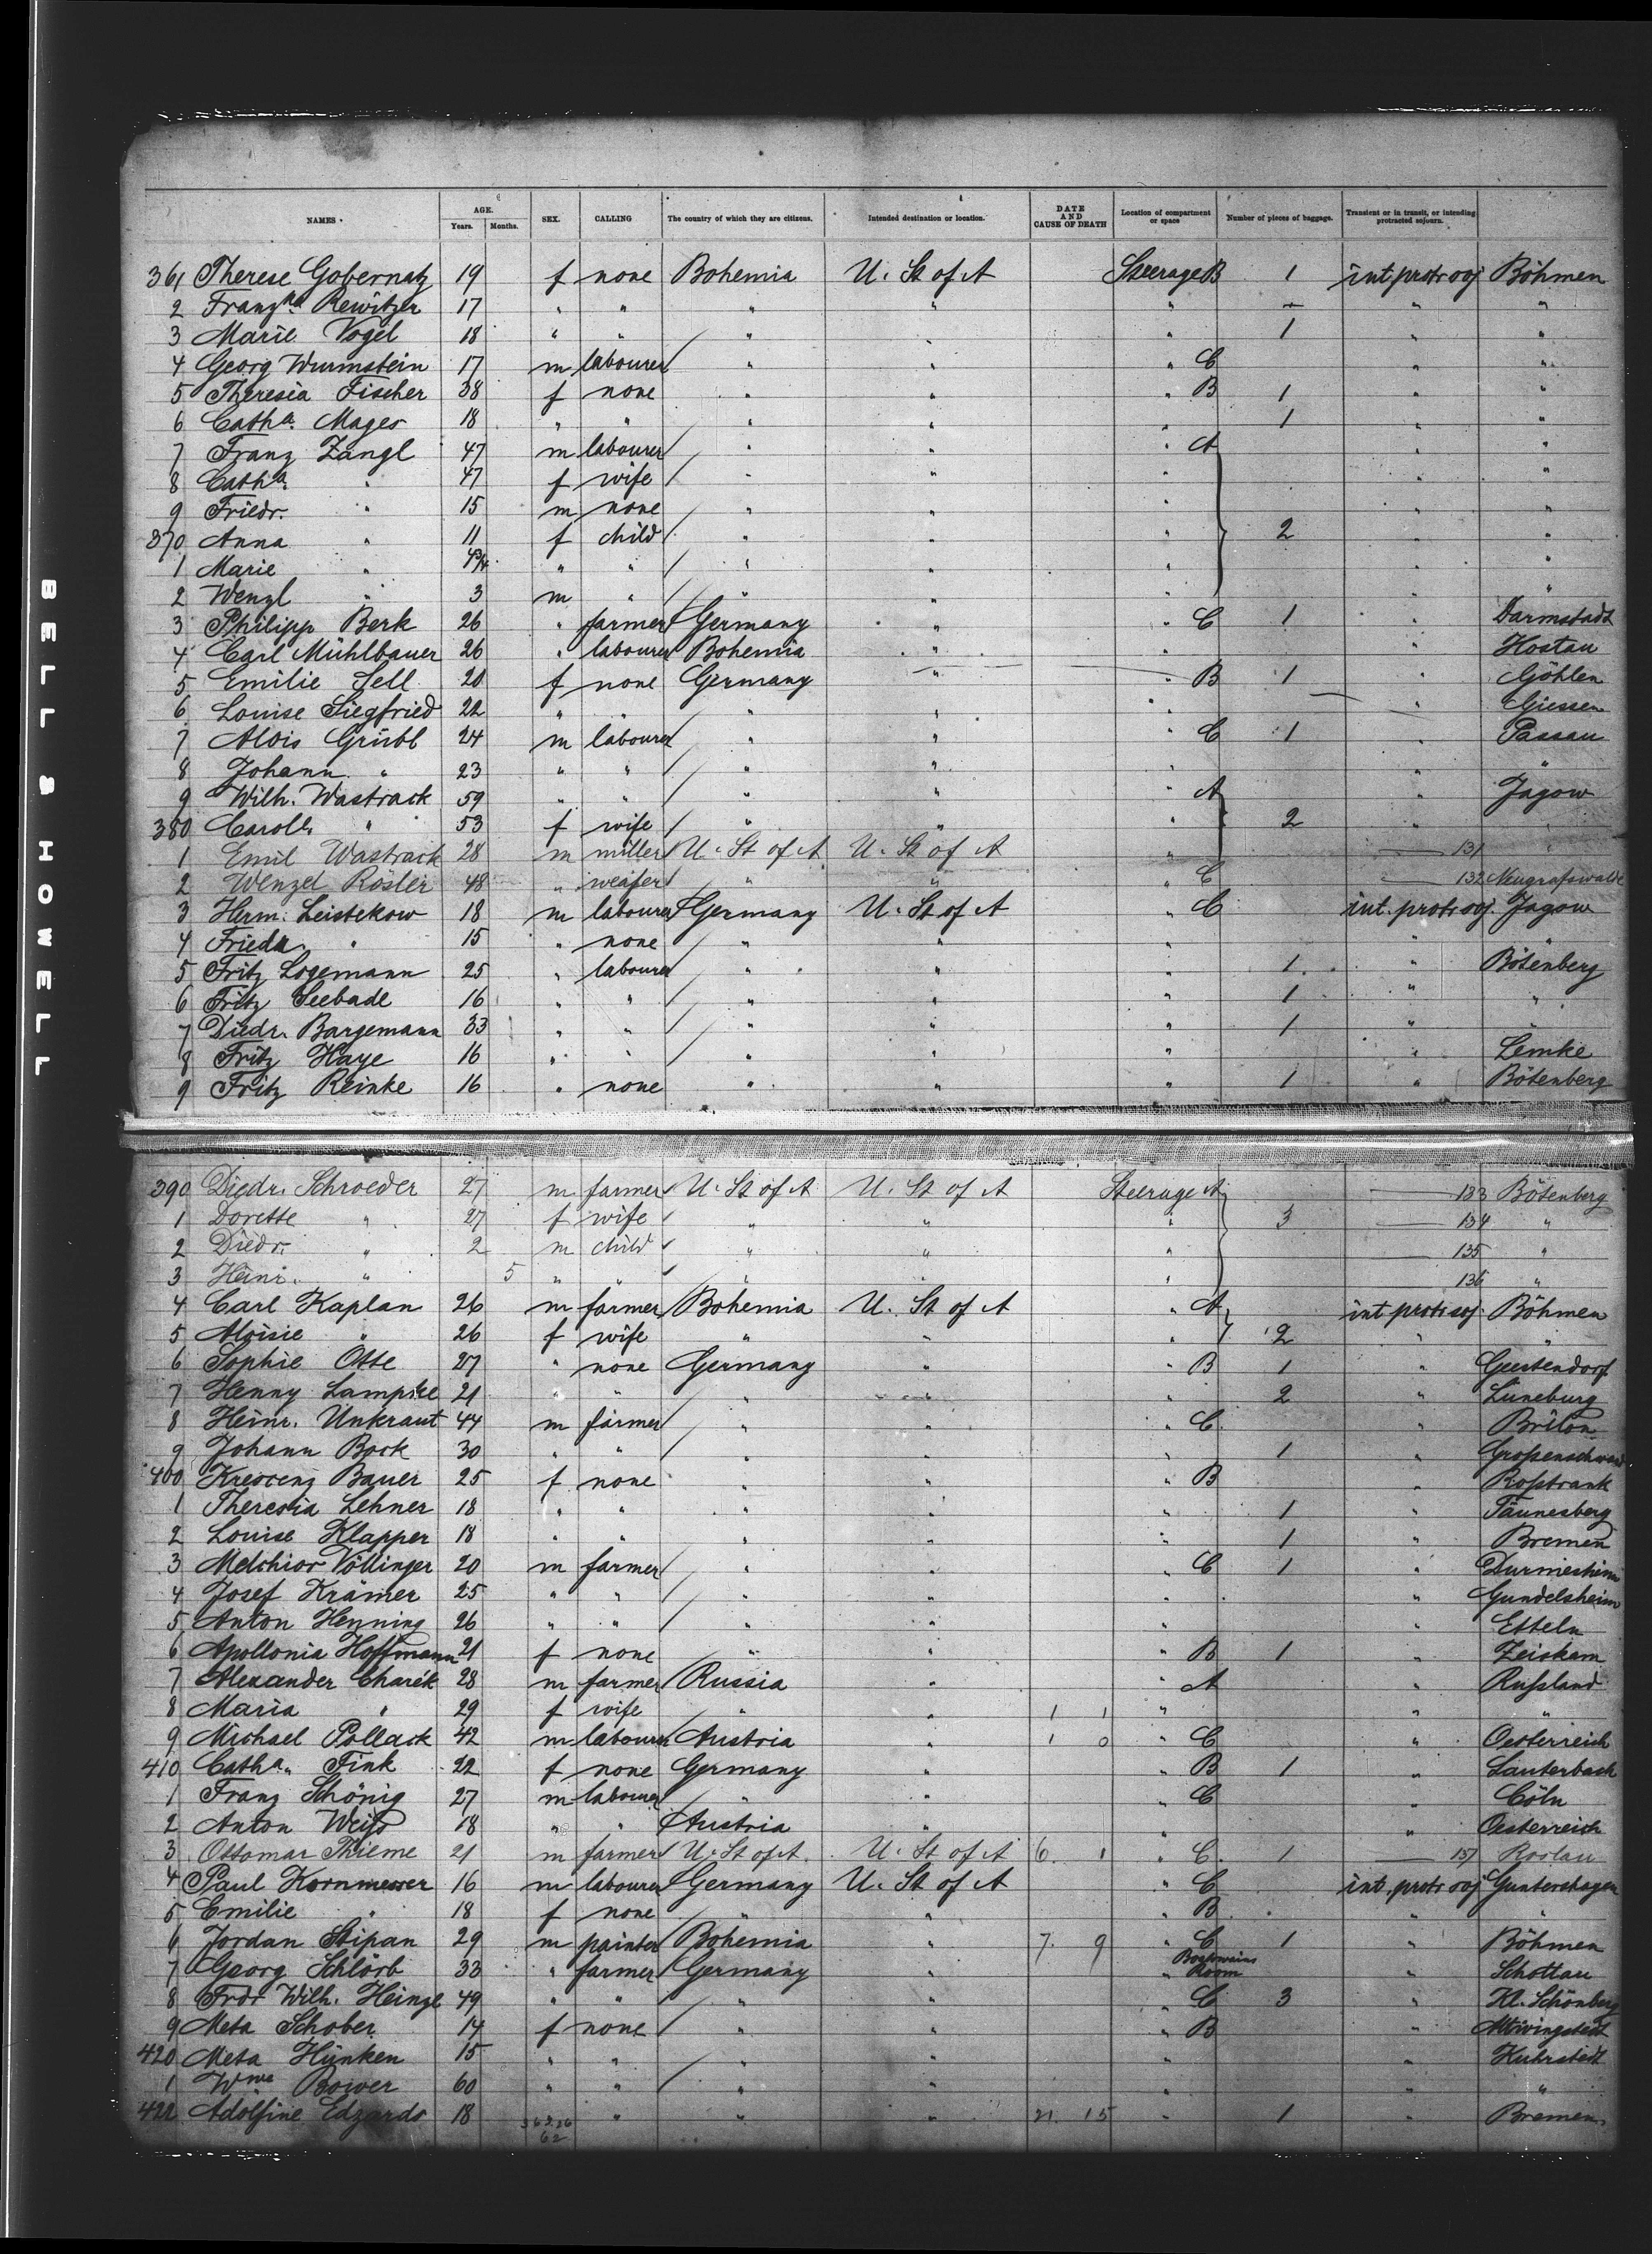 BELL & HOWELL
NAMES. AGE. Years. Months. SEX. CALLING The country of which they are citizens. Intended destination or location. DATE AND CAUSE OF DEATH Location of compartment or space Number of pieces of baggage. Transient or in transit, or intending protracted sojourn.
361 Therese Gobernatz 19 f none Bohemia U. St of A Steerage B 1 int. protr soj Böhmen
2 Franzka Rewitzer 17 " " " " " - " "
3 Marie Vogel 18 " " " " " 1 " "
4 Georg Wurmstein 17 m labourer " " " C " "
5 Theresia Fischer 38 f none " " " B 1 " "
6 Catha. Mages 18 " " " " " 1 " "
7 Franz Zängl 47 m labourer " " " A " "
8 Catha. " 47 f wife " " " "
9 Friedr. " 15 m none " " " " "
370 Anna " 11 f child " " " 2 " "
1 Marie " " " " " " "
2 Wenzl " 3 m " " " " " "
3 Philipp Berk 26 " farmer Germany " " C 1 " Darmstadt
4 Carl Mühlbauer 26 " labourer Bohemia " " " Hostau
5 Emilie Sell 20 f none Germany " " B 1 " Göhlen
6 Louise Siegfried 22 " " " " " Giessen
7 Alois Grübl 24 m labourer " " " C 1 " Passau
8 Johann " 23 " " " " " " "
9 Wilh. Wastrack 59 " " " " " A " Jagow
380 Caroll. " 53 f wife " " " 2 " "
1 Emil Wastrack 28 m miller U. St of A U. St of A " 131 "
2 Wenzel Rösler 48 " weafer " " C 132 Neugrafswalde
3 Herm. Leistekow 18 m labourer Germany U. St of A " C int. protr soj. Jagow
4 Friedr. " 15 " none " " " " "
5 Fritz Logemann 25 " labourer " " " 1 " Bötenberg
6 Fritz Seebade 16 " " " " " 1 " "
7 Diedr. Bargemann 33 " " " " " 1 " "
8 Fritz Haye 16 " " " " " " Lemke
9 Fritz Reinke 16 " none " " " 1 " Bötenberg
390 Diedr. Schroeder 27 m farmer U. St of A U. St of A Steerage A 133 Bötenberg
1 Dorette " 27 f wife " " " 3 134 "
2 Diedr. " 2 m child " " " 135 "
3 Heinr. " 5 " " " " 136 "
4 Carl Kaplan 26 m farmer Bohemia U. St of A " A int protr soj. Böhmen
5 Aloisie " 26 f wife " " " 2 " "
6 Sophie Otte 27 " none Germany " " B 1 " Geestendorf
7 Henny Lampke 21 " " " " " 2 " Lüneburg
8 Heinr. Unkraut 44 m farmer " " " C " Brilon
9 Johann Bock 30 " " " " " 1 "
400 Krescenz Bauer 25 f none " " " B "
1 Theresia Lehner 18 " " " " " 1 " Tännesberg
2 Louise Klapper 18 " " " " " 1 " Bremen
3 Melchior Völlinger 20 m farmer " " " C 1 " Durmersheim
4 Josef Krämer 25 " " " " " " Gundelsheim
5 Anton Henning 26 " " " " " " Etteln
6 Apollonia Hoffmann 21 f none " " " B 1 " Zeiskam
7 Alexander Charék 28 m farmer Russia " " A " Rußland
8 Maria " 29 f wife " " 1 1 " " "
9 Michael Pollack 42 m labourer Austria " 1 0 " C " Oesterreich
410 Catha. Fink 22 f none Germany " " B 1 " Lauterbach
1 Franz Schönig 27 m labourer " " " C " Cöln
2 Anton Weiß 18 " " Austria " " " Oesterreich
3 Ottomar Thieme 21 m farmer U. St of A U. St of A 6. 1 " C. 1 137 Roslau
4 Paul Kornmesser 16 m labourer Germany U. St of A " C int. protr soj Guntershagen
5 Emilie " 18 f none " " " B " "
6 Jordan Stipan 29 m painter Bohemia " 7. 9 " C 1 " Böhmen
7 Georg Schlörb 33 " farmer Germany " " Boatswains Room " Schottau
8 Frdr Wilh. Heinze 49 " " " " " C 3 " Kl. Schönberg
9 Meta Schober 14 f none " " " B "
420 Meta Hünken 15 " " " " " " Kuhrstedt
1 Wwe Bower 60 " " " " " " "
422 Adolfine Edzards 18 " " " 21. 15 " 1 " Bremen.